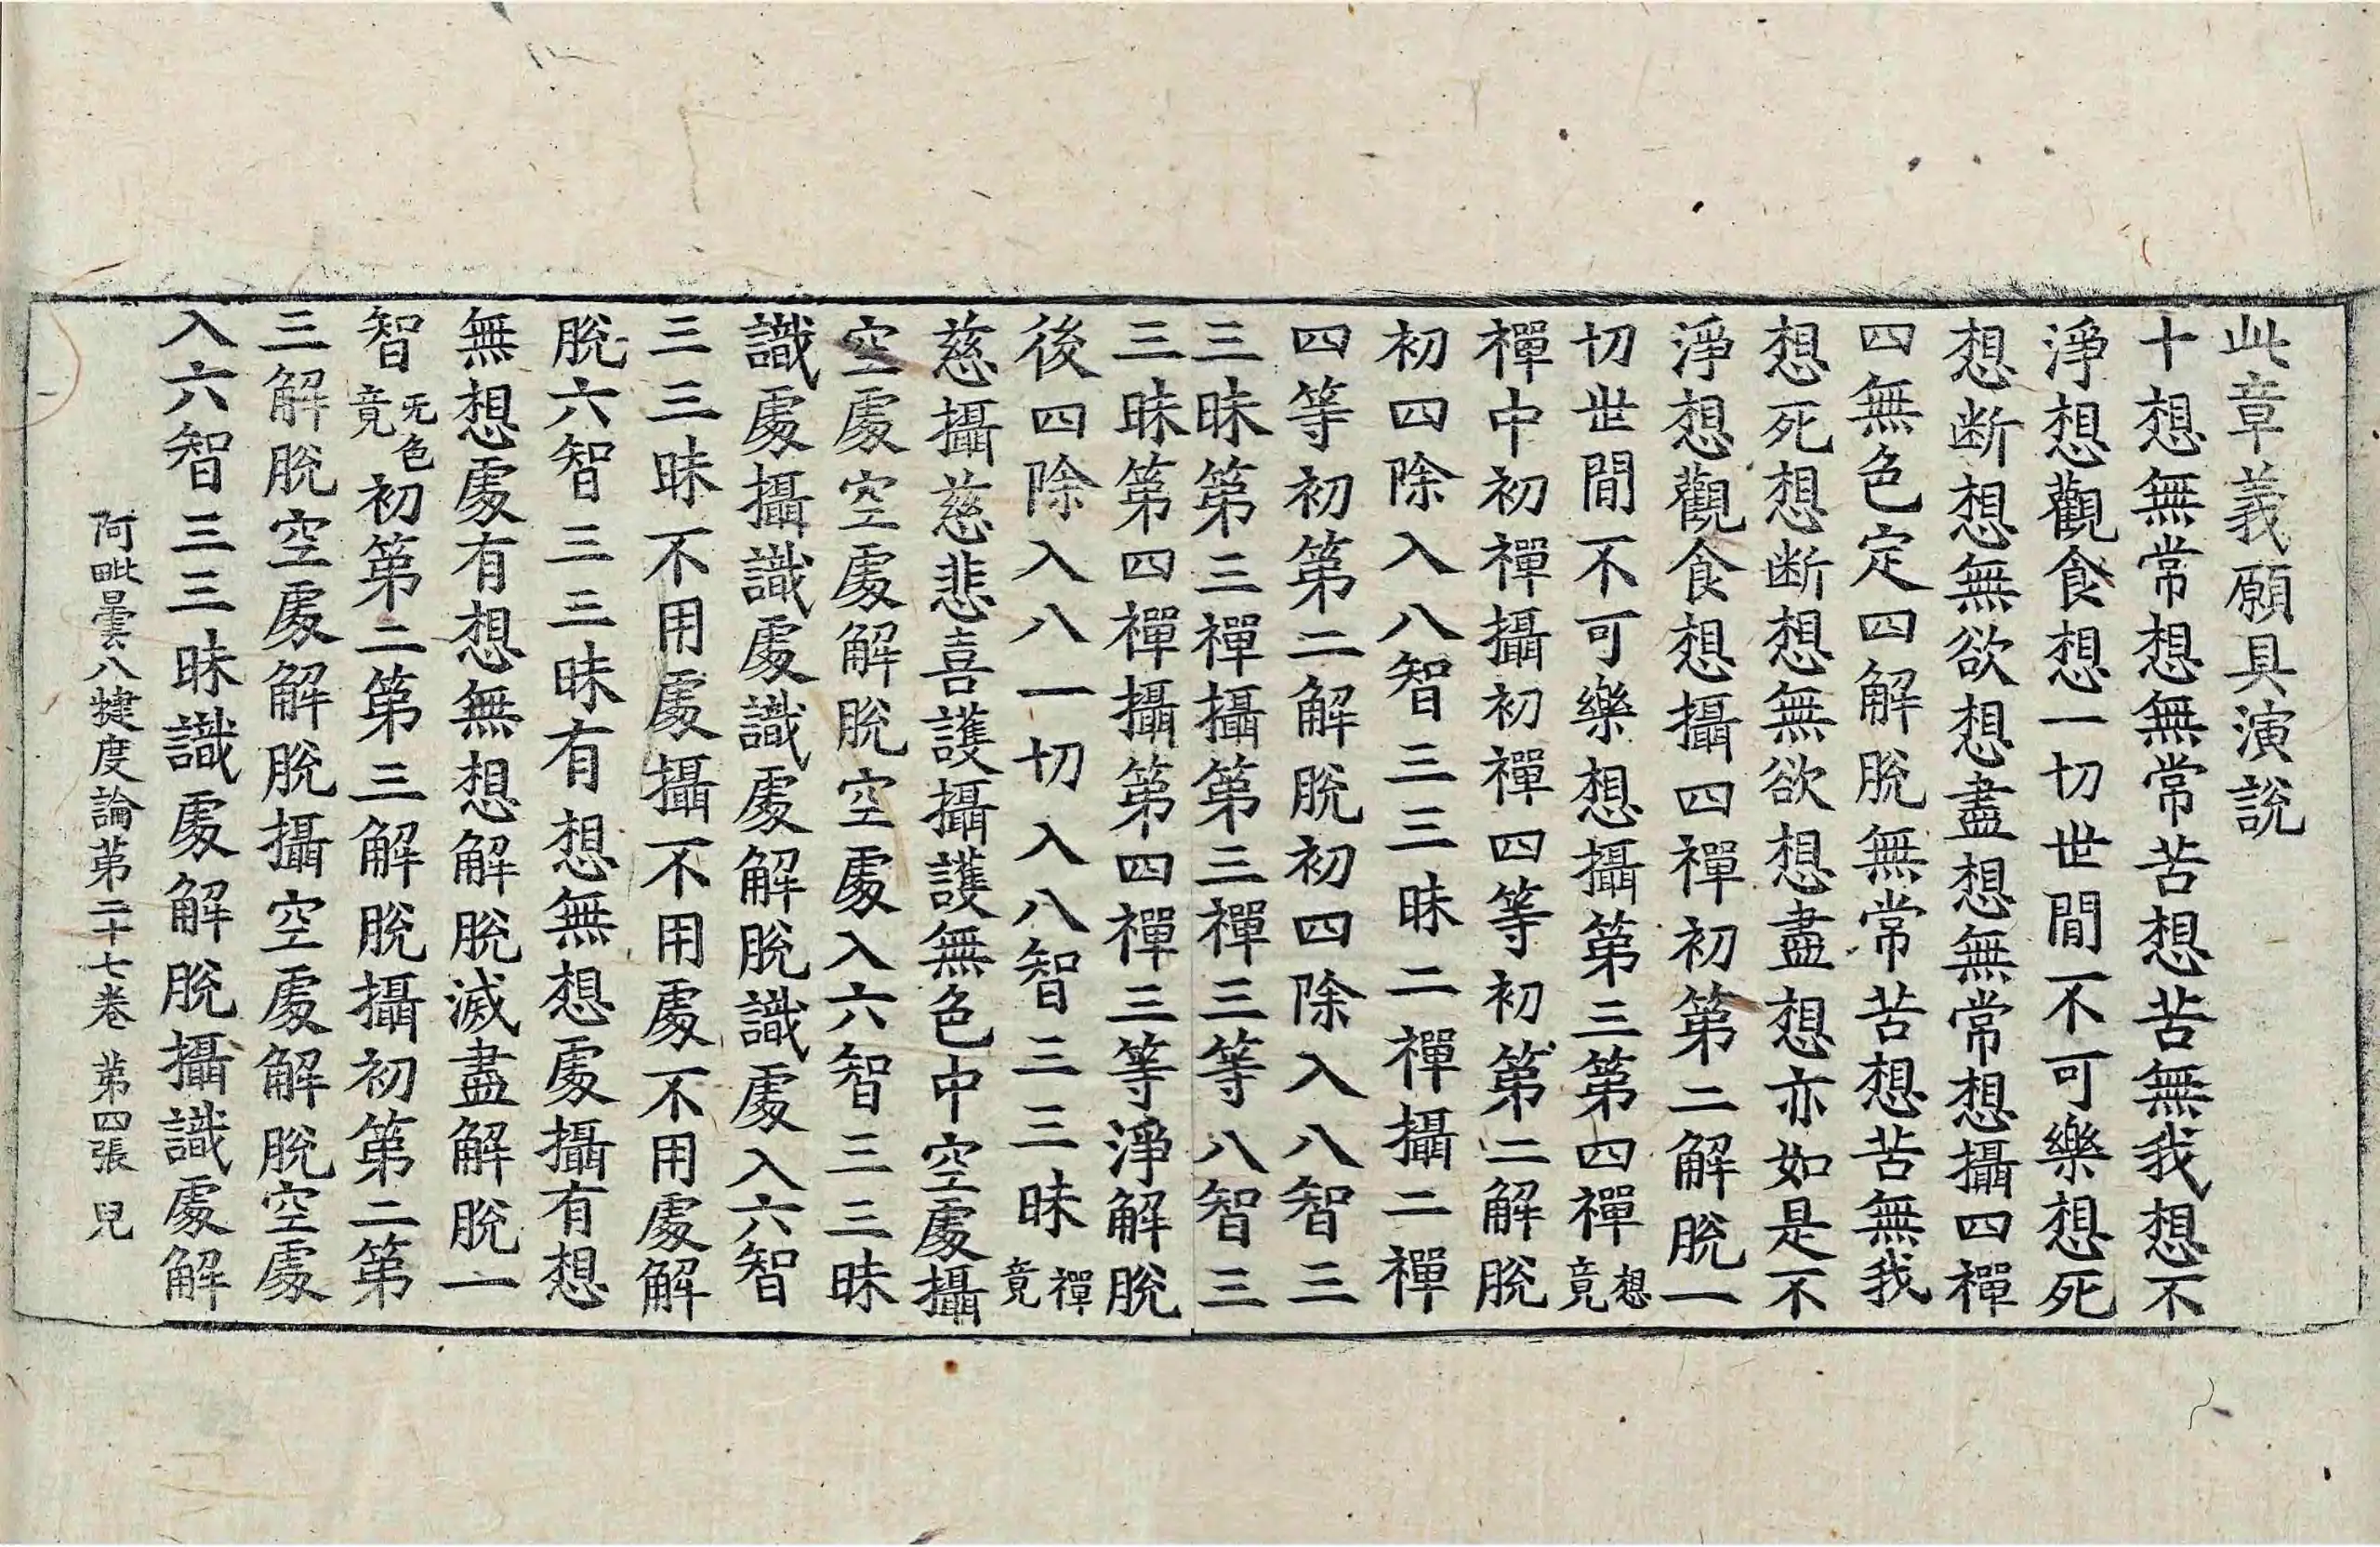 此章義願具演說
十想無常想無常苦想苦無我想不
淨想觀食想一切世間不可樂想死
想断想無欲想盡想無常想攝四禪
四無色定四解脫無常苦想苦無我
想死想断想無欲想盡想亦如是不
淨想觀食想攝四禪初第二解脫一
切世間不可樂想攝第三第四禪想竟
禪中初禪攝初禪四等初第二解脫
初四除入八智三三昧二禪攝二禪
四等初第二解脫初四除入八智三
三昧第三禪攝第三禪三等八智三
三昧第四禪攝第四禪三等淨解脫
後四除入八一切入八智三三昧禪竟
慈攝慈悲喜護攝護無色中空處攝
空處空處解脫空處入六智三三昧
識處攝識處識處解脫識處入六智
三三昧不用處攝不用處不用處解
脫六智三三昧有想無想處攝有想
無想處有想無想解脫滅盡解脫一
智无色竟初第二第三解脫攝初第二第
三解脫空處解脫攝空處解脫空處
入六智三三昧識處解脫攝識處解
阿毗曇八揵度論第二十七卷 第四張 見